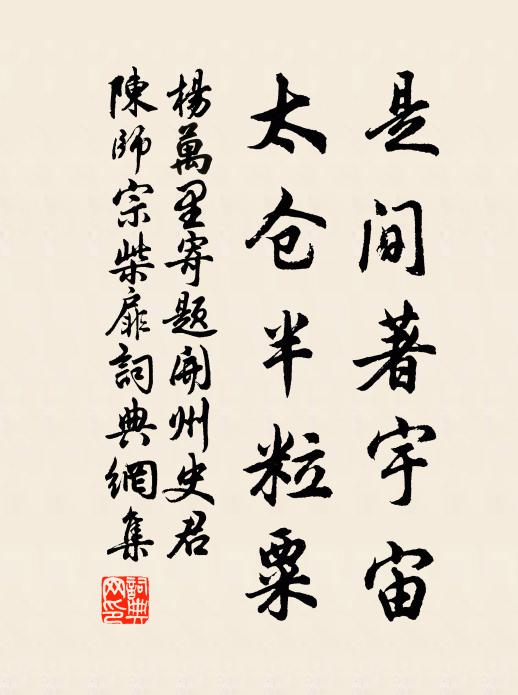 是间著宇宙
太仓半粒粟
楊萬里寄题開州史君
陳師宗柴扉詞典網集
詞典
网印